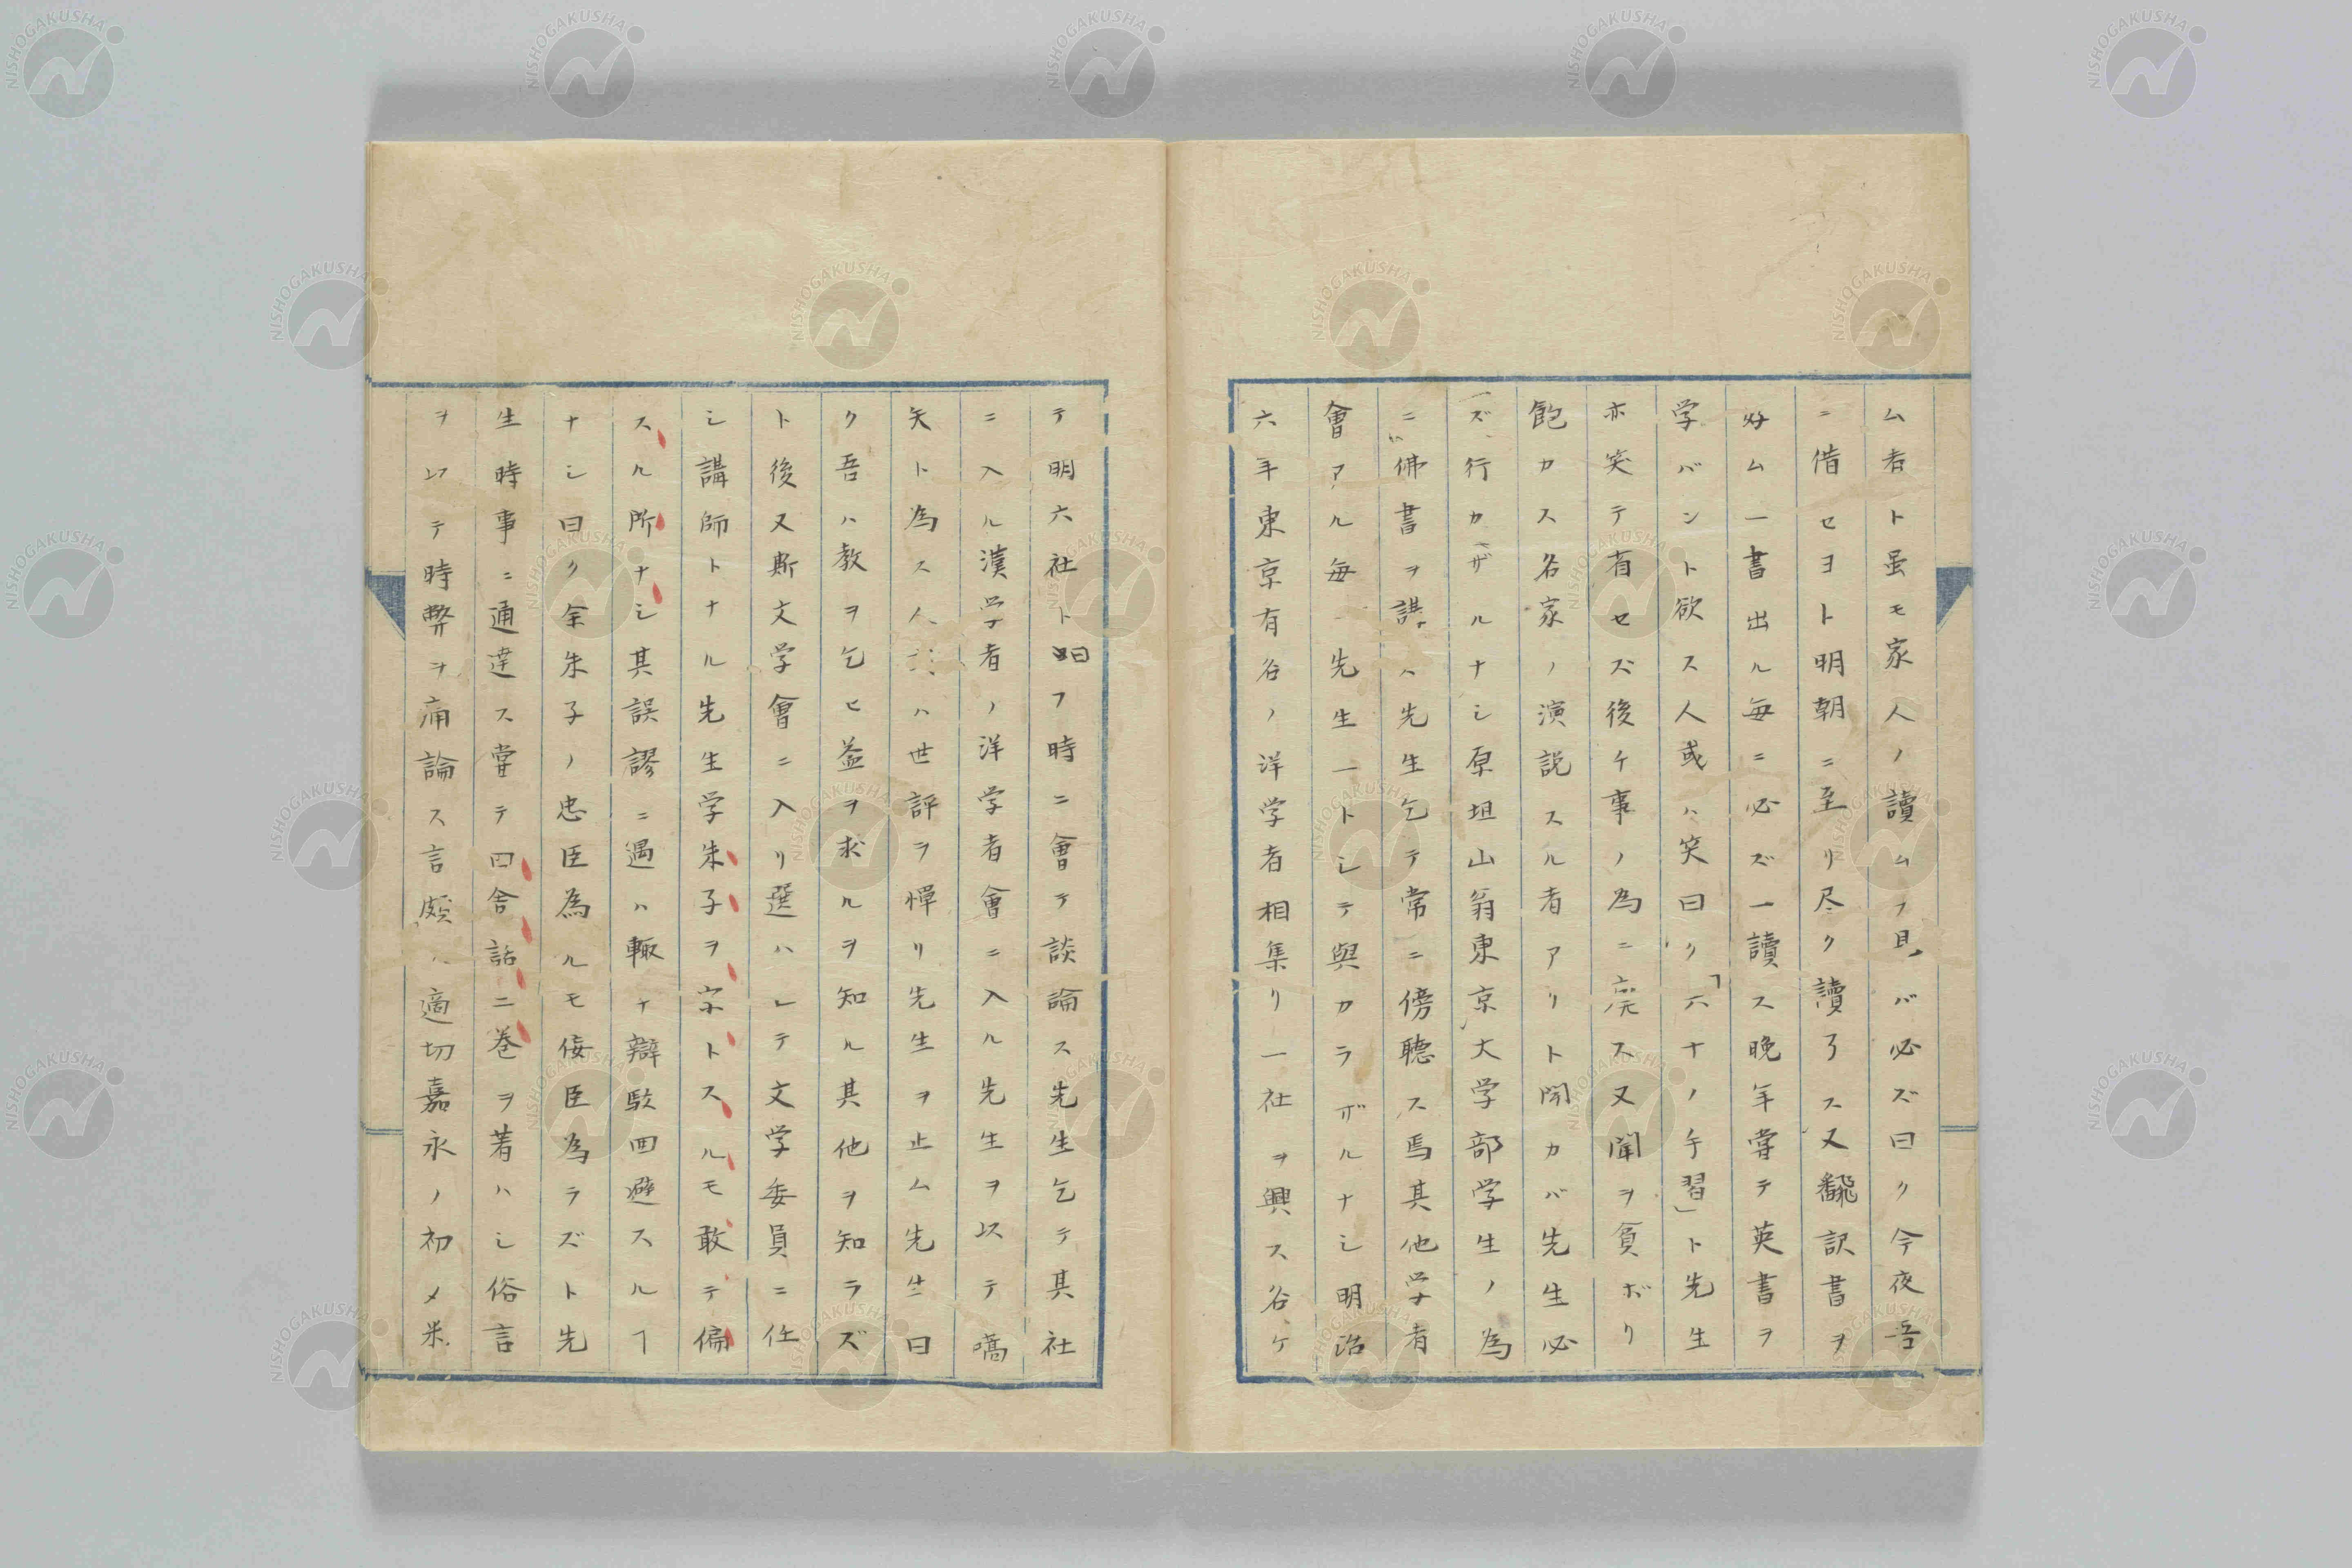 ム者ト虽モ家人ノ讀ムヲ見バ必ズ曰ク今夜吾
ニ借セヨト明朝ニ至リ尽ク讀了ス又飜訳書ヲ
好ム一書出ル毎ニ必ズ一讀ス晩年嘗テ英書ヲ
学バント欲ス人或ハ笑曰ク「六十ノ手習」ト先生
亦笑テ省セズ後チ事ノ為ニ完ス又聞ヲ貪ボリ
飽カス名家ノ演説スル者アリト聞カバ先生必
ズ行カザルナシ原坦山翁東京大学部学生ノ為
ニ佛書ヲ講ス先生乞テ常ニ傍聴ス焉其他学者
會アル毎先生一トシテ與カラザルナシ明治
六年東京有名ノ洋学者相集リ一社ヲ興ス名ケ
テ明六社ト曰フ時ニ會テ談論ス先生乞テ其社
ニ入ル漢学者ノ洋学者會ニ入ル先生ヲ以テ嚆
矢ト為ス人或ハ世評ヲ憚リ先生ヲ止ム先生曰
ク吾ハ教ヲ乞ヒ益ヲ求ルヲ知ル其他ヲ知ラズ
ト後又斯文学會ニ入リ選ハレテ文学委員ニ任
シ講師トナル先生学朱子ヲ宗トスルモ敢テ偏
スル所ナシ其誤謬ニ遇ハ輙チ辯駁回避スルヿ
ナシ曰ク余朱子ノ忠臣為ルモ佞臣為ラズト先
生時事ニ通達ス嘗テ田舎話二巻ヲ著ハシ俗言
ヲ以テ時弊ヲ痛論ス言頗ル適切嘉永ノ初メ米
NISHOGAKUSHA